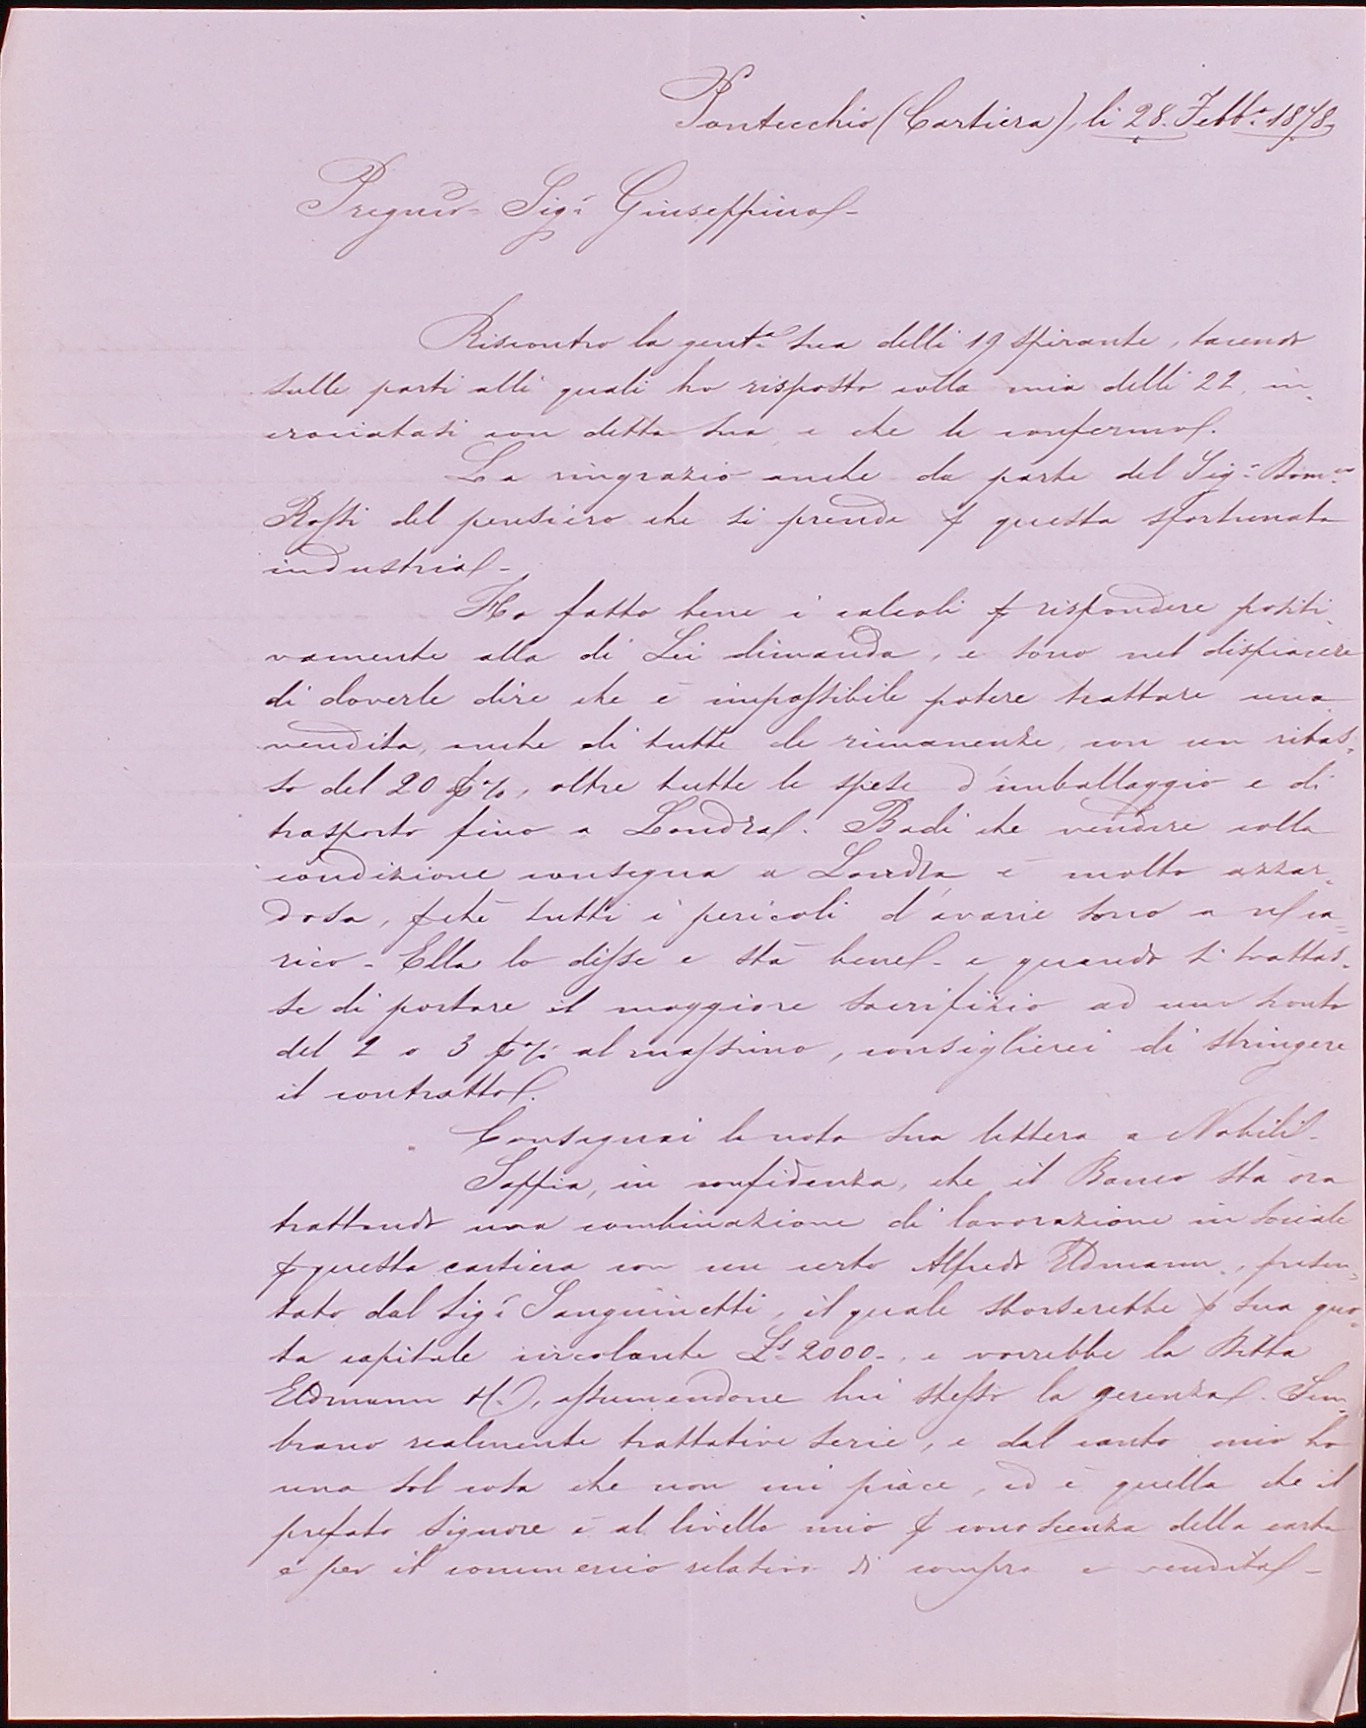 Pontecchio (Cartiera), li 28. Febb.o 1878,
Pregmo Sigr Giuseppino -
Riscontro la gent.a Sua delli 19 spirante, tacendo
sulle parti alli quali ho risposto colla mia delli 22, in-
crociatasi con detta Sua, e che le confermo.
La ringrazio anche da parte del Sigr Bom.co
Rossi del pensiero che si prende p questa sfortunata
industria -
Ho fatto bene i calcoli p rispondere positi-
vamente alla di Lei dimanda, e sono nel dispiacere
di doverle dire che è impossibile potere trattare una
vendita, anche di tutte le rimanenze, con un ribas-
so del 20 p%, oltre tutte le spese d'imballaggio e di
trasporto fino a Londra. Badi che vendere colla
condizione consegna a Londra è molto azzar-
dosa, pchè tutti i pericoli d'avarie sono a ns/ ca-
rico - Ella lo disse e stà bene - e quando si trattas-
se di portare il maggiore sacrifizio ad uno sconto
del 2 o 3 p% al massimo, consiglierei di stringere
il contratto.
Consegnai la nota Sua lettera a Nobili -
Sappia, in confidenza, che il Banco stà ora
trattando una combinazione di lavorazione in sociale
p questa cartiera con un certo Alfredo Eldmann, presen-
tato dal Sigr Sanguinetti, il quale sborserebbe p sua quo-
ta capitale circolante Ls 2000 -, e vorrebbe la Ditta
Eldmann &C.), assumendone lui stesso la gerenza. Sem-
brano realmente trattative serie, e dal canto mio ho
una sol cosa che non mi piace, ed è quella che il
prefato Signore è al livello mio p conoscenza della carta
e per il commercio relativo di compra e vendita -